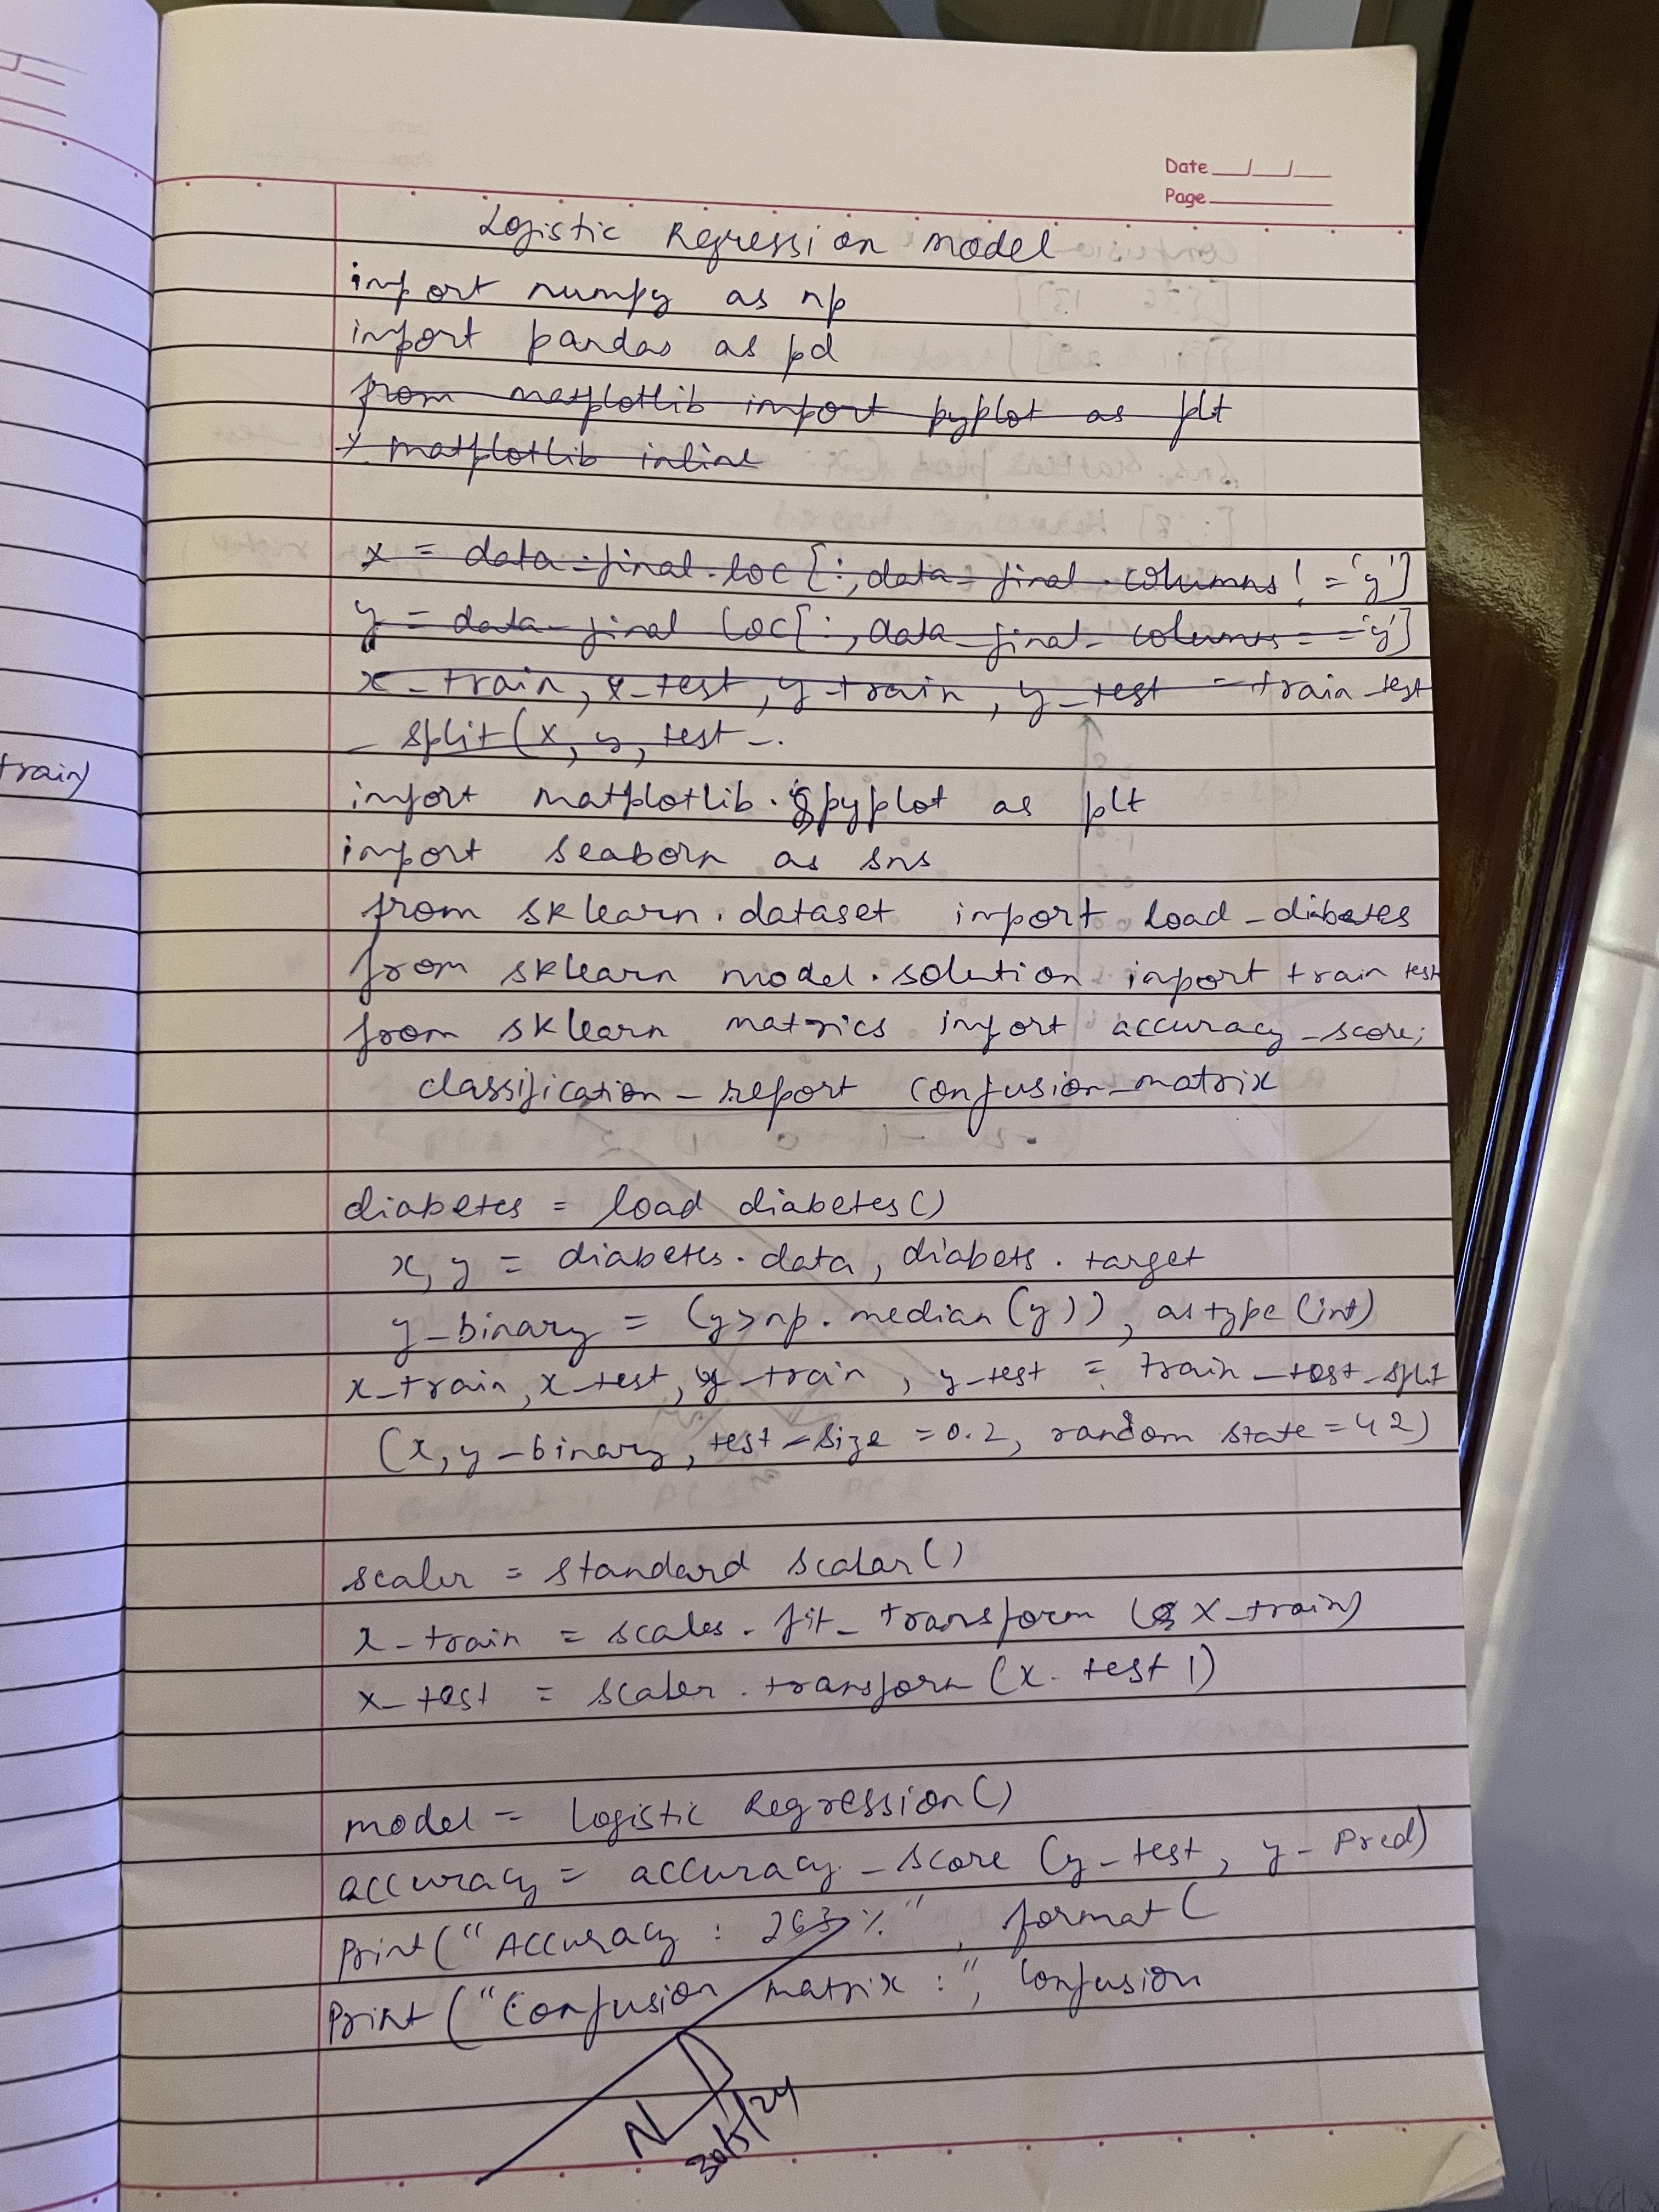 Date
Page
Logistic Regression model
import numpy as np
import pandas as pd
from matplotlib import pyplot as plt
% matplotlib inline
x = data-final.loc[:, data-final.columns != 'y']
y = data-final loc[:, data-final-columns == 'y']
x-train, x-test, y-train, y-test = train-test
- split(x, y, test-.
import matplotlib.pyplot as plt
import seaborn as sns
from sklearn.dataset import load-diabetes
from sklearn model.solution import train test
from sklearn matrics import accuracy-score;
classification-report confusion-matrix
diabetes = load diabetes()
x, y = diabetes.data, diabets.target
y-binary = (y>np.median(y)), astype(int)
x-train, x-test, y-train, y-test = train-test-split
(x, y-binary, test-size = 0.2, random state = 42)
scaler = standard scalar()
x-train = scaler.fit-transform (X-train)
x-test = scaler.transform (x-test 1)
model = Logistic Regression()
accuracy = accuracy-score (y-test, y-Pred)
Print("Accuracy : %", format(
Print("Confusion matrix :", Confusion
train)
30/5/24